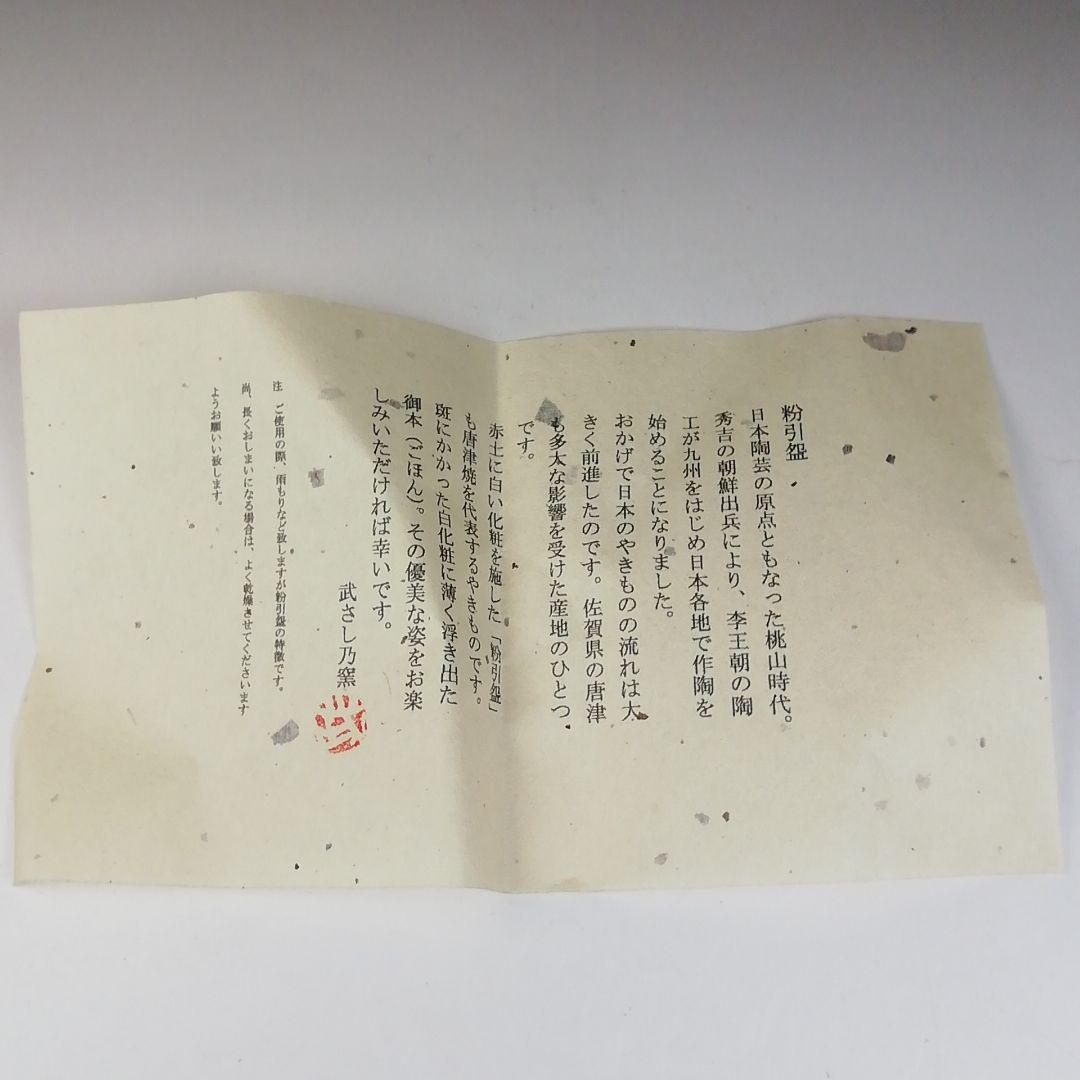 粉引盌
日本陶芸の原点ともなった桃山時代。
秀吉の朝鮮出兵により、李王朝の陶
工が九州をはじめ日本各地で作陶を
始めることになりました。
おかげで日本のやきものの流れは大
きく前進したのです。佐賀県の唐津
も多大な影響を受けた産地のひとつ
です。
赤土に白い化粧を施した「粉引盌」
も唐津焼を代表するやきものです。
斑にかかった白化粧に薄く浮き出た
御本（ごほん）。その優美な姿をお楽
しみいただければ幸いです。
武さし乃窯
注 ご使用の際、雨もりなど致しますが粉引盌の特徴です。
尚、長くおしまいになる場合は、よく乾燥させてくださいます
ようお願いい致します。